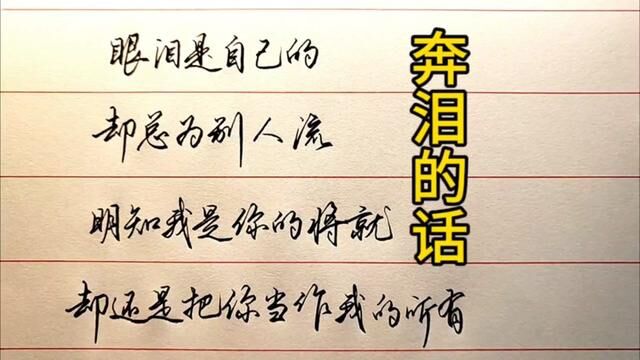 眼泪是自己的
却总为别人流
明知我是你的将就
却还是把你当作我的所有
奔泪的话